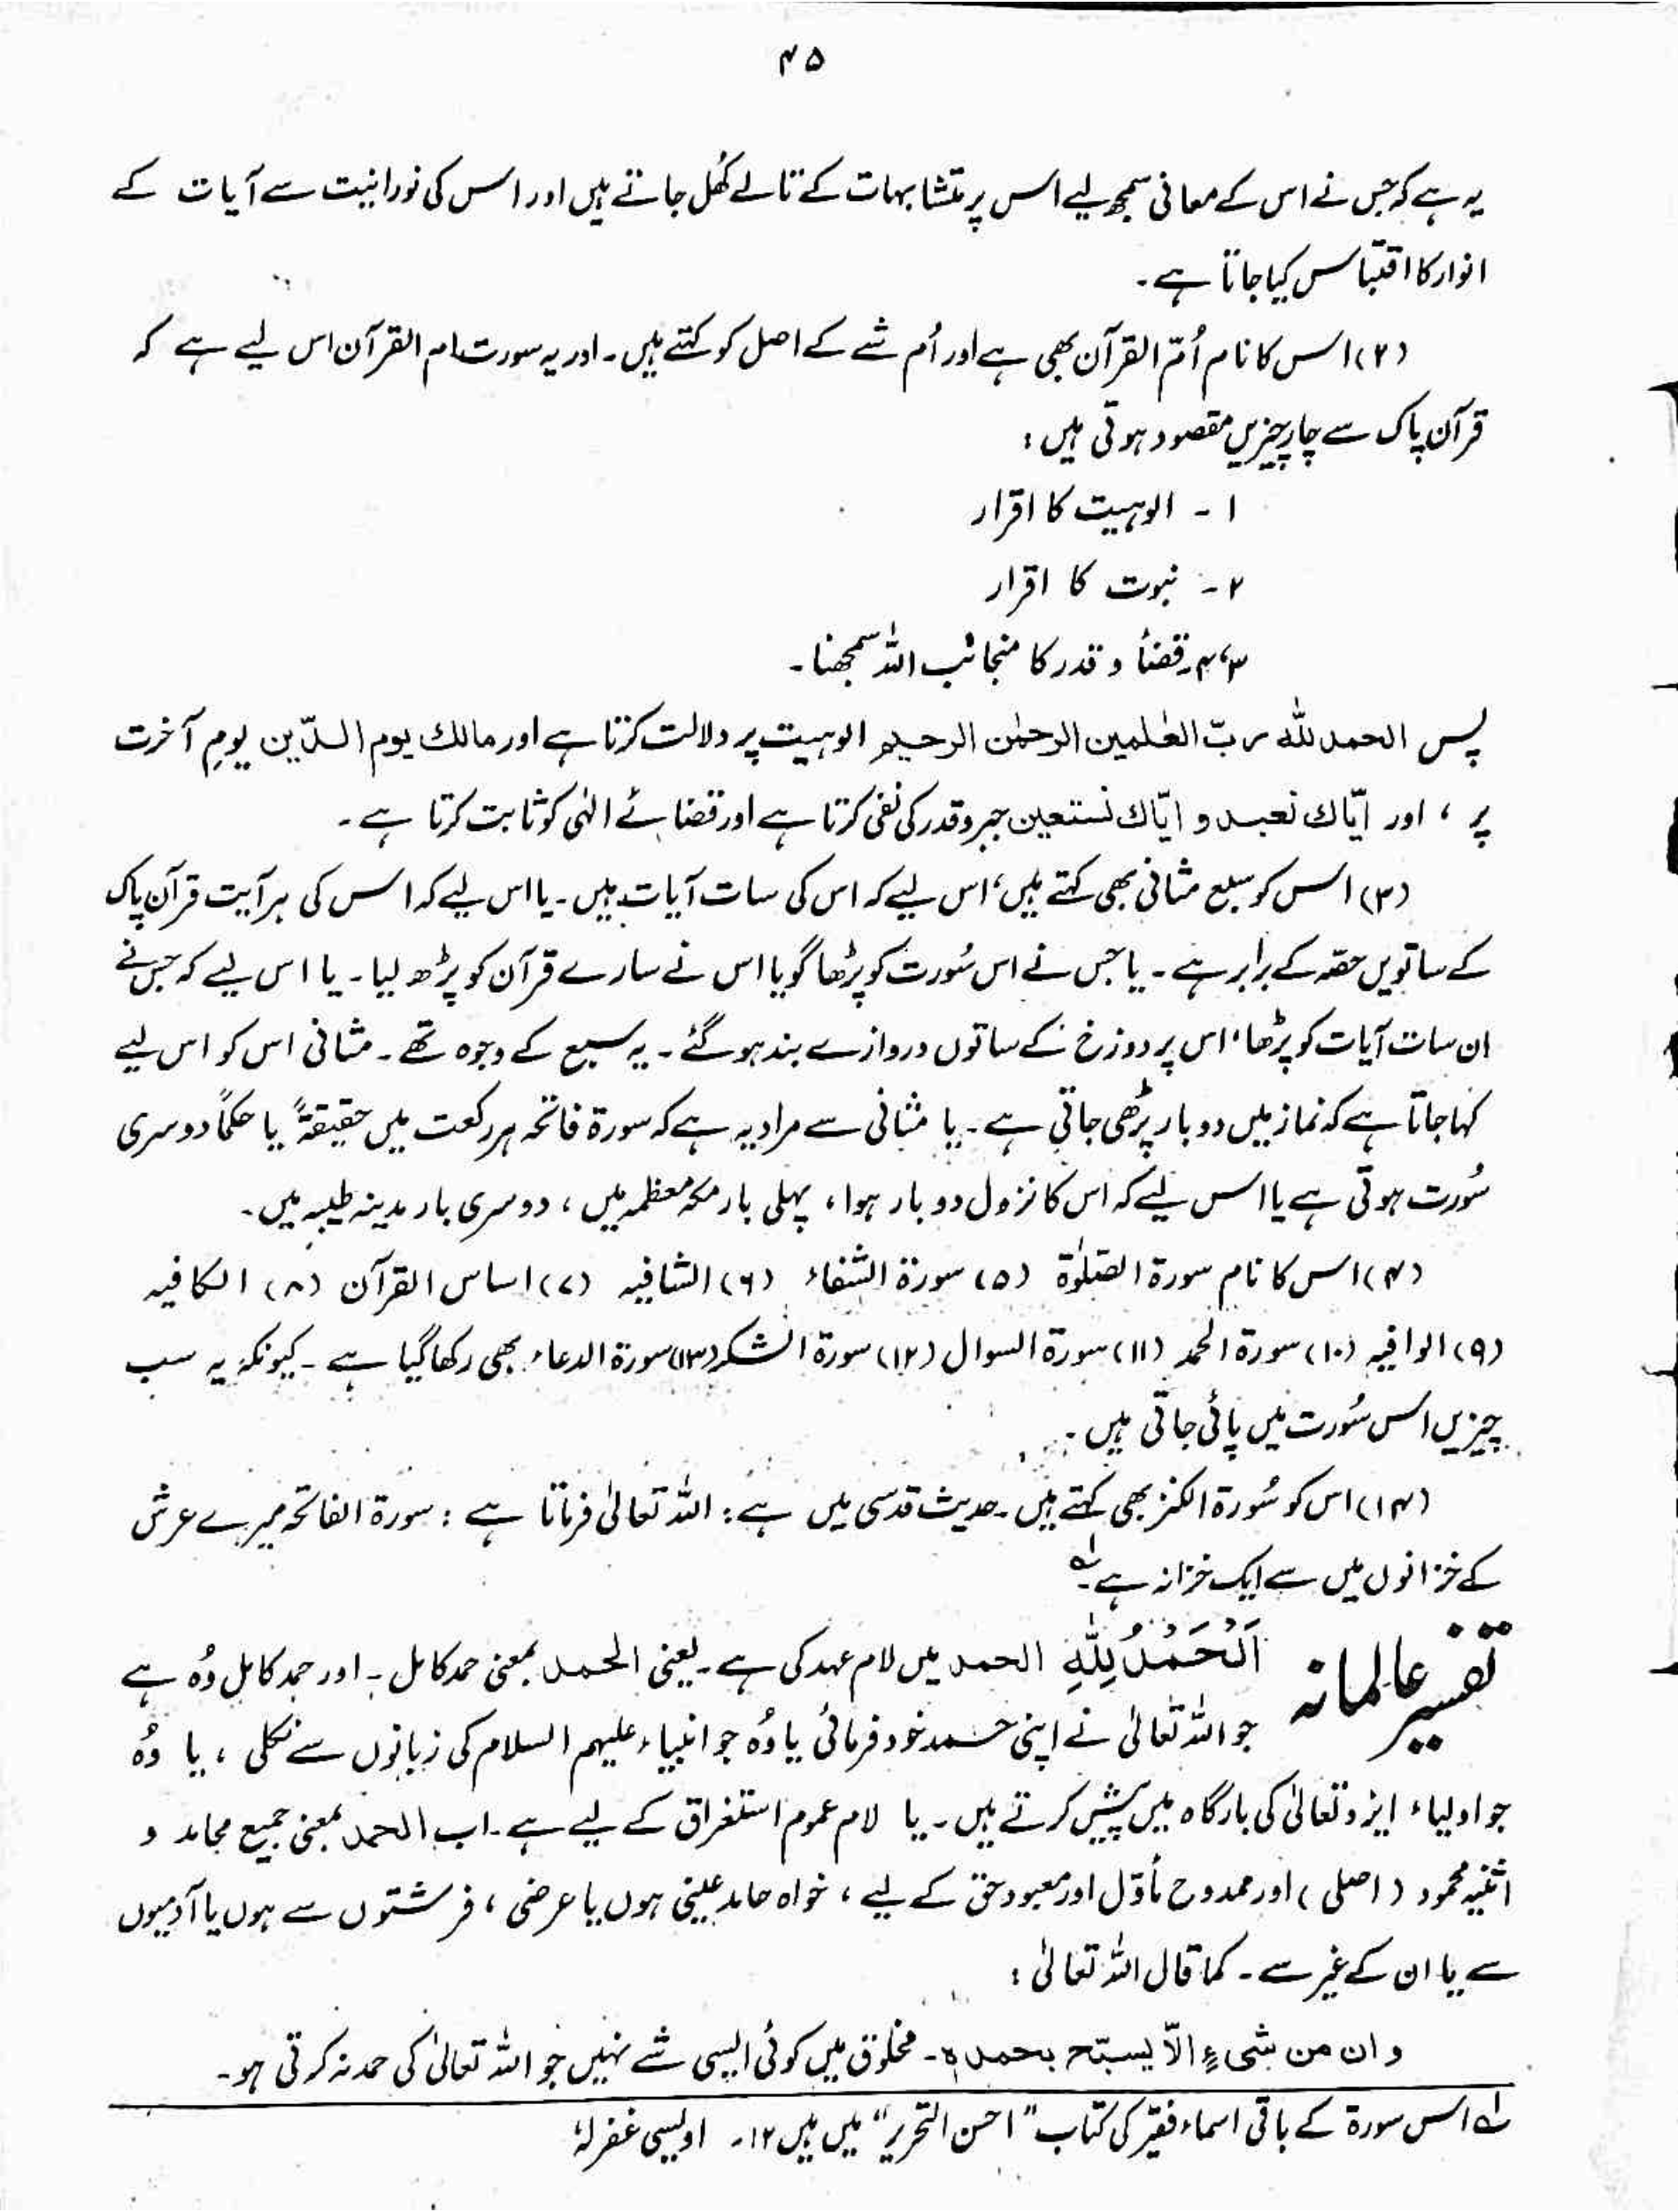 ۴۵
یہ ہے کہ جس نے اس کے معانی سمجھ لیے اس پر متشابہات کے تالے کھُل جاتے ہیں اور اس کی نورانیت سے آیات کے
انوار کا اقتباس کیا جاتا ہے۔
(۲) اس کا نام اُمّ القرآن بھی ہے اور اُم شے کے اصل کو کہتے ہیں۔ اور یہ سورت ام القرآن اس لیے ہے کہ
قرآن پاک سے چار چیزیں مقصود ہوتی ہیں:
۱ - الوہیت کا اقرار
۲ - نبوت کا اقرار
۳، ۴۔ قضأ و قدر کا منجانب اللہ سمجھنا۔
پس الحمد للّٰہ ربّ العٰلمین الرحمٰن الرحیم الوہیت پر دلالت کرتا ہے اور مالك یوم الدّین یومِ آخرت
پر ، اور ایّاك نعبد و ایّاك نستعین جبر و قدر کی نفی کرتا ہے اور قضائے الٰہی کو ثابت کرتا ہے۔
(۳) اس کو سبع مثانی بھی کہتے ہیں، اس لیے کہ اس کی سات آیات ہیں۔ یا اس لیے کہ اس کی ہر آیت قرآن پاک
کے ساتویں حصّہ کے برابر ہے۔ یا جس نے اس سُورت کو پڑھا گویا اس نے سارے قرآن کو پڑھ لیا۔ یا اس لیے کہ جس نے
ان سات آیات کو پڑھا، اس پر دوزخ کے ساتوں دروازے بند ہو گئے۔ یہ سبع کے وجوہ تھے۔ مثانی اس کو اس لیے
کہا جاتا ہے کہ نماز میں دو بار پڑھی جاتی ہے۔ یا مثانی سے مراد یہ ہے کہ سورۃ فاتحہ ہر رکعت میں حقیقۃً یا حکماً دوسری
سُورت ہوتی ہے یا اس لیے کہ اس کا نزول دو بار ہوا، پہلی بار مکہ معظمہ میں ، دوسری بار مدینہ طیبہ میں۔
(۴) اس کا نام سورۃ الصّلوٰۃ (۵) سورۃ الشفاء (۶) الشافیہ (۷) اساس القرآن (۸) الکافیہ
(۹) الوافیہ (۱۰) سورۃ الحمد (۱۱) سورۃ السوال (۱۲) سورۃ الشکر (۱۳) سورۃ الدعاء بھی رکھا گیا ہے۔ کیونکہ یہ سب
چیزیں اس سُورت میں پائی جاتی ہیں۔
(۱۴) اس کو سُورۃ الکنز بھی کہتے ہیں۔ حدیث قدسی میں ہے: اللہ تعالیٰ فرماتا ہے : سورۃ الفاتحہ میرے عرش
کے خزانوں میں سے ایک خزانہ ہے۔ لہ
تفسیر عالمانہ اَلْحَمْدُ لِلّٰہِ الحمد میں لام عہد کی ہے۔ یعنی الحمد بمعنی حمد کامل۔ اور حمد کامل وُہ ہے
جو اللہ تعالیٰ نے اپنی حمد خود فرمائی یا وُہ جو انبیاء علیہم السلام کی زبانوں سے نکلی ، یا وُہ
جو اولیاء ایزد تعالیٰ کی بارگاہ میں پیش کرتے ہیں۔ یا لام عموم استغراق کے لیے ہے۔ اب الحمد بمعنی جمیع محامد و
اثنیہ محمود (اصلی) اور ممدوح مأوّل اور معبود حق کے لیے ، خواہ حامد عینی ہوں یا عرضی ، فرشتوں سے ہوں یا آدمیوں
سے یا ان کے غیر سے۔ کما قال اللہ تعالیٰ :
و ان من شیءٍ الّا یسبّح بحمدہ۔ مخلوق میں کوئی ایسی شے نہیں جو اللہ تعالیٰ کی حمد نہ کرتی ہو۔
لہ اس سورۃ کے باقی اسماء فقیر کی کتاب "احسن التحریر" میں ہیں ۱۲۔ اویسی غفر لہٗ